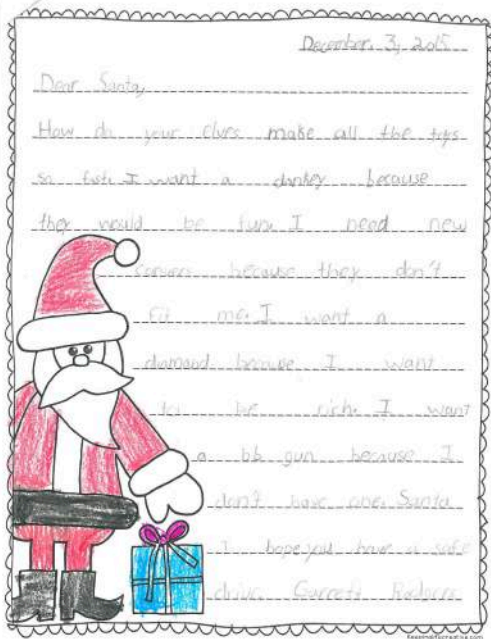 December 3, 2015
Dear Santa,
How do your elves make all the toys
so fast. I want a donkey because
they would be fun. I need new
because they don't
fit me. I want a
diamond because I want
to be rich. I want
a bb gun because I
don't have one. Santa
I hope you have a safe
drive. Garrett